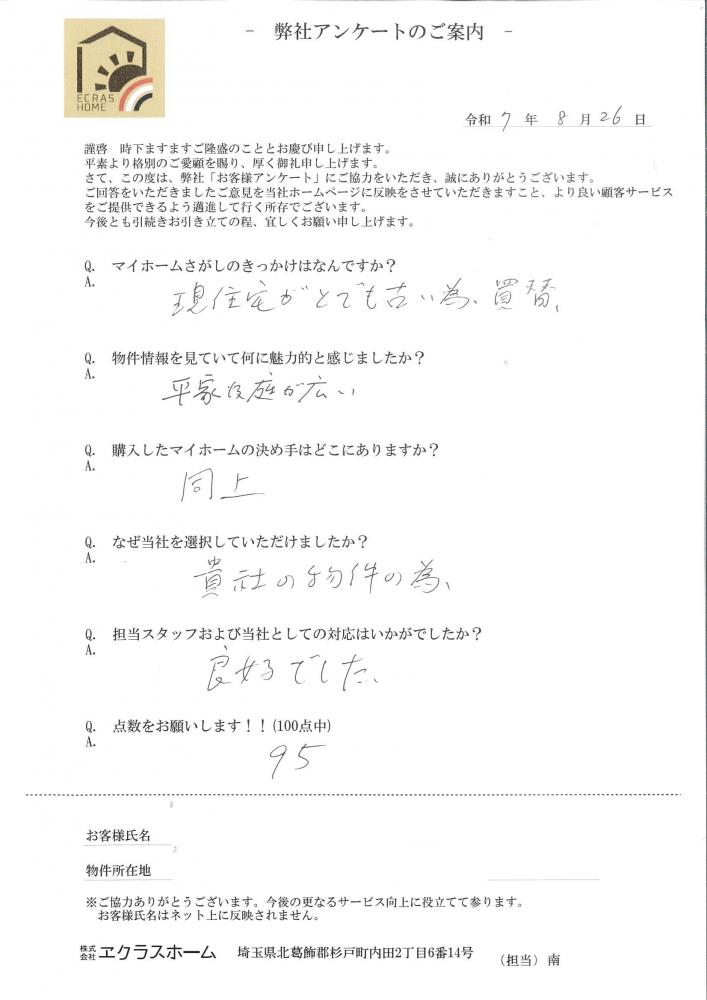 - 弊社アンケートのご案内 -
ECRAS
HOME
令和 7 年 8 月 26 日
謹啓 時下ますますご隆盛のこととお慶び申し上げます。
平素より格別のご愛顧を賜り、厚く御礼申し上げます。
さて、この度は、弊社「お客様アンケート」にご協力をいただき、誠にありがとうございます。
ご回答をいただきましたご意見を当社ホームページに反映をさせていただきますこと、より良い顧客サービス
をご提供できるよう邁進して行く所存でございます。
今後とも引続きお引き立ての程、宜しくお願い申し上げます。
Q. マイホームさがしのきっかけはなんですか？
A. 現住宅がとても古い為、買替、
Q. 物件情報を見ていて何に魅力的と感じましたか？
A. 平家及庭が広い
Q. 購入したマイホームの決め手はどこにありますか？
A. 同上
Q. なぜ当社を選択していただけましたか？
A. 貴社の物件の為、
Q. 担当スタッフおよび当社としての対応はいかがでしたか？
A. 良好でした、
Q. 点数をお願いします！！(100点中)
A. 95
お客様氏名
物件所在地
※ご協力ありがとうございます。今後の更なるサービス向上に役立てて参ります。
お客様氏名はネット上に反映されません。
株式会社 ヱクラスホーム 埼玉県北葛飾郡杉戸町内田2丁目6番14号 （担当）南